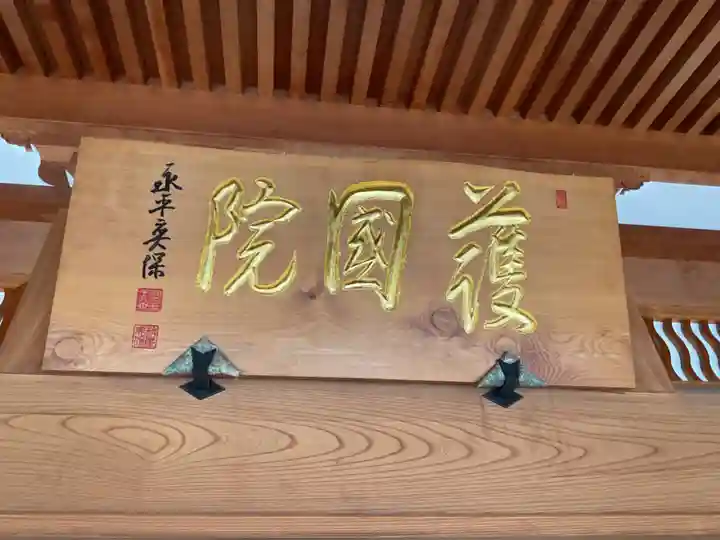 護國院
永平奕保